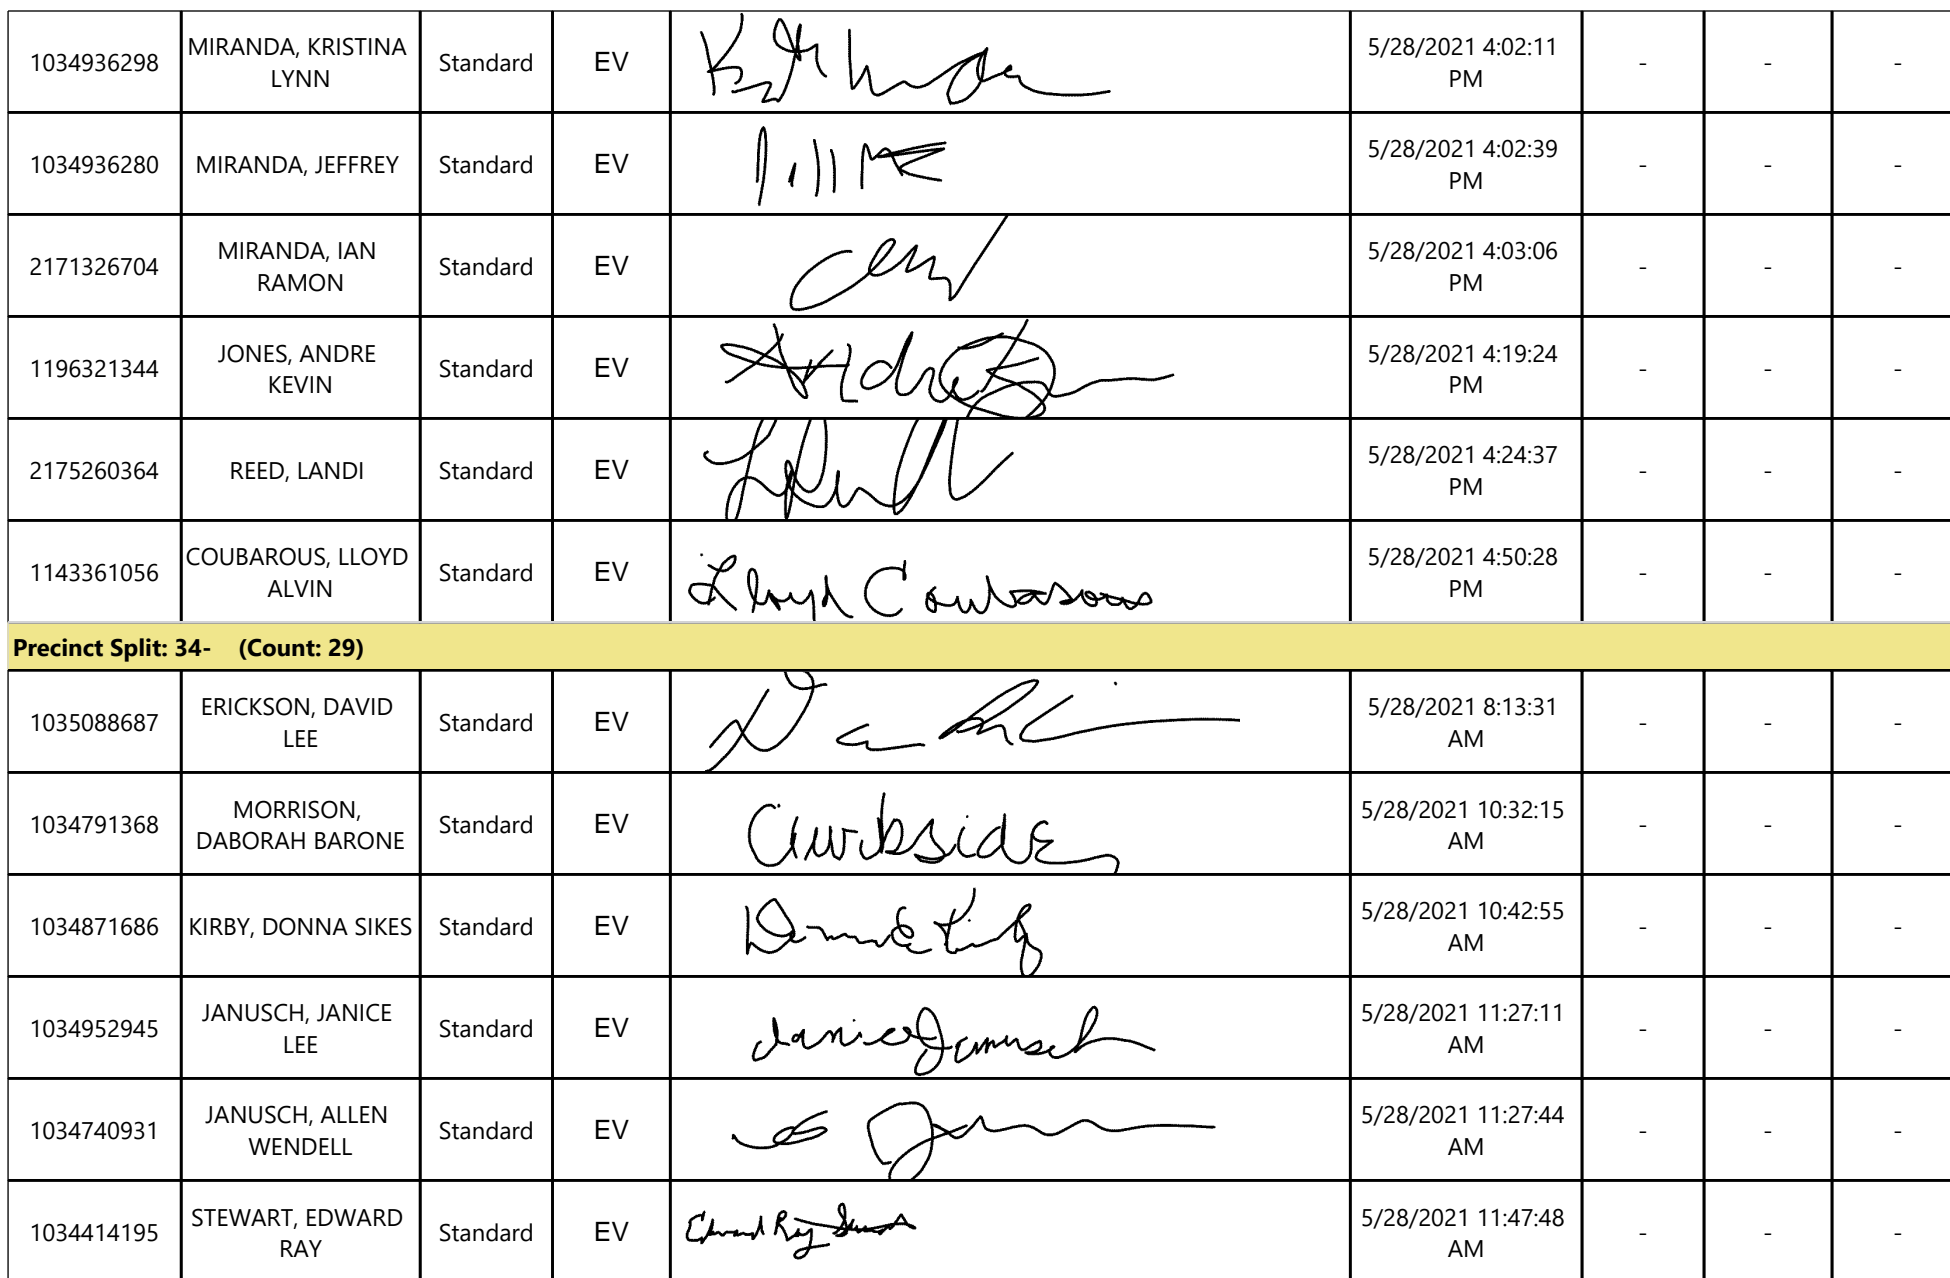 1034936298 MIRANDA, KRISTINA LYNN Standard EV 5/28/2021 4:02:11 PM - - -
1034936280 MIRANDA, JEFFREY Standard EV 5/28/2021 4:02:39 PM - - -
2171326704 MIRANDA, IAN RAMON Standard EV 5/28/2021 4:03:06 PM - - -
1196321344 JONES, ANDRE KEVIN Standard EV 5/28/2021 4:19:24 PM - - -
2175260364 REED, LANDI Standard EV 5/28/2021 4:24:37 PM - - -
1143361056 COUBAROUS, LLOYD ALVIN Standard EV Lloyd Coubarous 5/28/2021 4:50:28 PM - - -
Precinct Split: 34- (Count: 29)
1035088687 ERICKSON, DAVID LEE Standard EV 5/28/2021 8:13:31 AM - - -
1034791368 MORRISON, DABORAH BARONE Standard EV Curbside 5/28/2021 10:32:15 AM - - -
1034871686 KIRBY, DONNA SIKES Standard EV 5/28/2021 10:42:55 AM - - -
1034952945 JANUSCH, JANICE LEE Standard EV Janice Janusch 5/28/2021 11:27:11 AM - - -
1034740931 JANUSCH, ALLEN WENDELL Standard EV 5/28/2021 11:27:44 AM - - -
1034414195 STEWART, EDWARD RAY Standard EV Edward Ray 5/28/2021 11:47:48 AM - - -